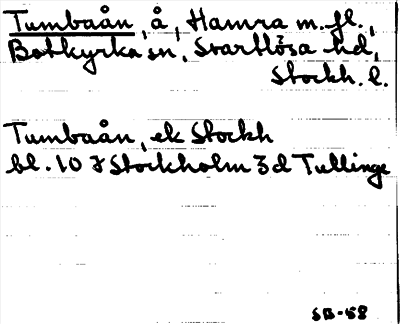 Tumbaån, å, Hamra m. fl.,
Botkyrka sn, Svartlösa hd,
Stockh. l.
Tumbaån, ek Stockh
bl. 10 J Stockholm 3d Tullinge
SB-58